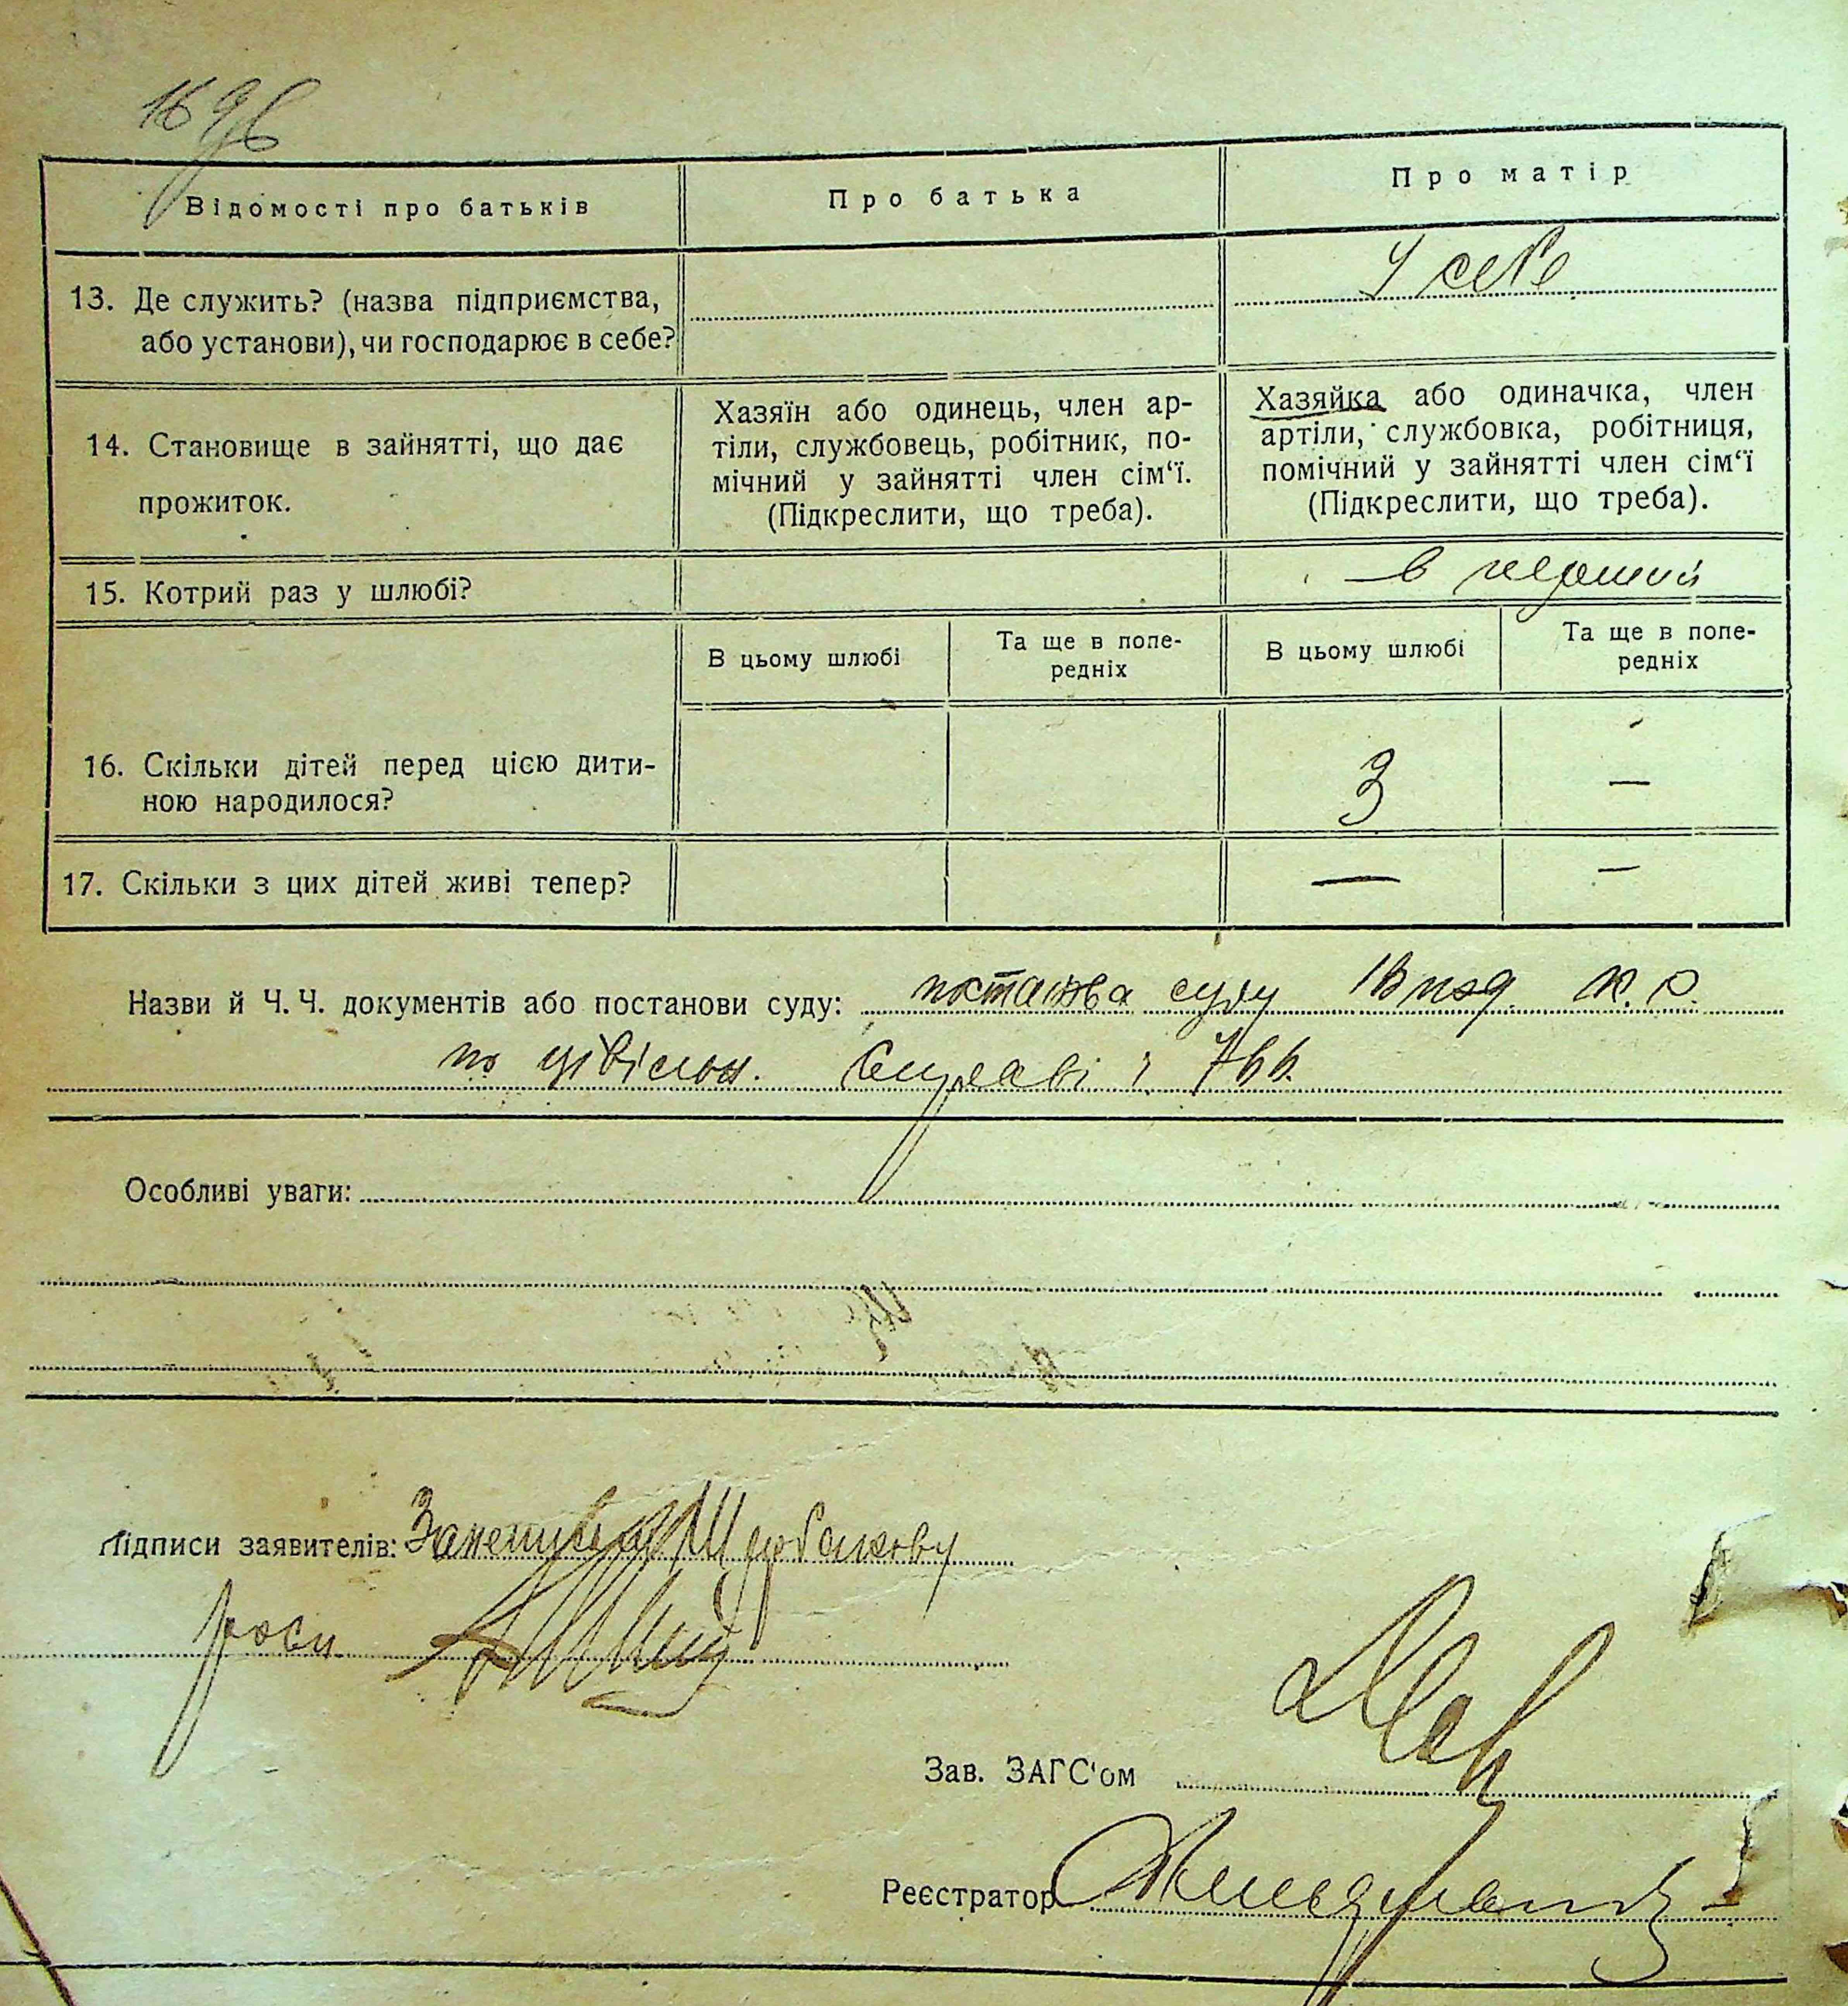 1696
Відомості про батьків
Про батька
Про матір
13. Де служить? (назва підприємства,
або установи), чи господарює в себе?
У себе
14. Становище в зайнятті, що дає
прожиток.
Хазяїн або одинець, член ар-
тіли, службовець, робітник, по-
мічний у зайнятті член сім‘ї.
(Підкреслити, що треба).
Хазяйка або одиначка, член
артіли, службовка, робітниця,
помічний у зайнятті член сім‘ї
(Підкреслити, що треба).
15. Котрий раз у шлюбі?
в перший
В цьому шлюбі
Та ще в попе-
редніх
В цьому шлюбі
Та ще в попе-
редніх
16. Скільки дітей перед цією дити-
ною народилося?
3
—
17. Скільки з цих дітей живі тепер?
—
—
Назви й Ч. Ч. документів або постанови суду: постанова суду
по цівільн.
Особливі уваги:
Підписи заявителів:
Зав. ЗАГС'ом
Реєстратор